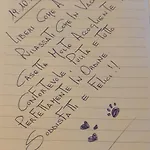 Liberi come a
Rilassati come in va
Casetta molto accogliente
Confortevole pulita e tutto
Perfettamente in ordine
Soddisfatti e felici!!